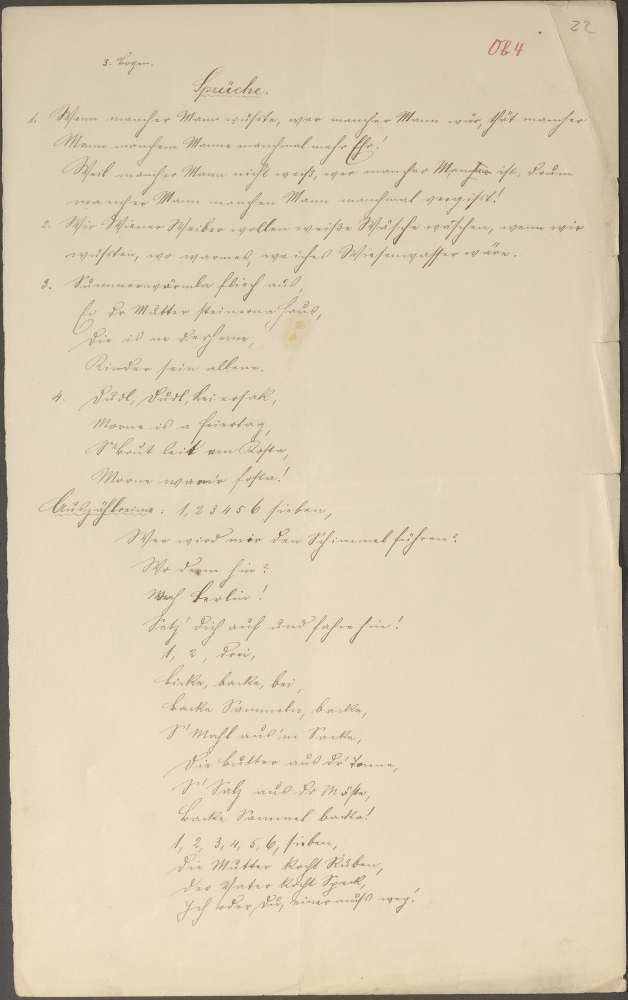 22
Ob 4
3. Bogen.
Sprüche.
1. Wenn mancher Mann wüsste, wer mancher Mann wär, thät mancher
Mann manchem Manne manchmal mehr Ehr!
Weil mancher Mann nicht weiß, wer mancher Mann ist, drum
mancher Mann manchen Mann manchmal vergisst!
2. Wir Wiener Weiber wollen weiße Wäsche waschen, wenn wir
wüssten, wo warmes, weiches Wiesenwasser wäre.
3. Summerwärmla fliech aus,
Ei dr Mutter steinerna Haus,
Die is ne derheeme,
Kinder sein alleene.
4. Dudl, Dudl, Leiersak,
Morne is a Feiertag,
S' Brut leit em Kosta,
Morne warn'r fosta!
Auszählreime: 1, 2 3 4 5 6 sieben,
Wer wird mir den Schimmel führen?
Wo denn hin?
Nach Berlin!
Setz' dich auf und fahre hin!
1, 2, drei,
bicke, backe, bei,
backe Sammeln, backe,
S' Mahl aus'm Sacke,
Die Butter aus dr Tonne,
S' Salz aus dr Mäste,
Backe Sammel backe!
1, 2, 3, 4, 5, 6, sieben,
Die Mutter kocht Rüben,
Der Vater kocht Speck,
Ich oder Du, einer muß weg!